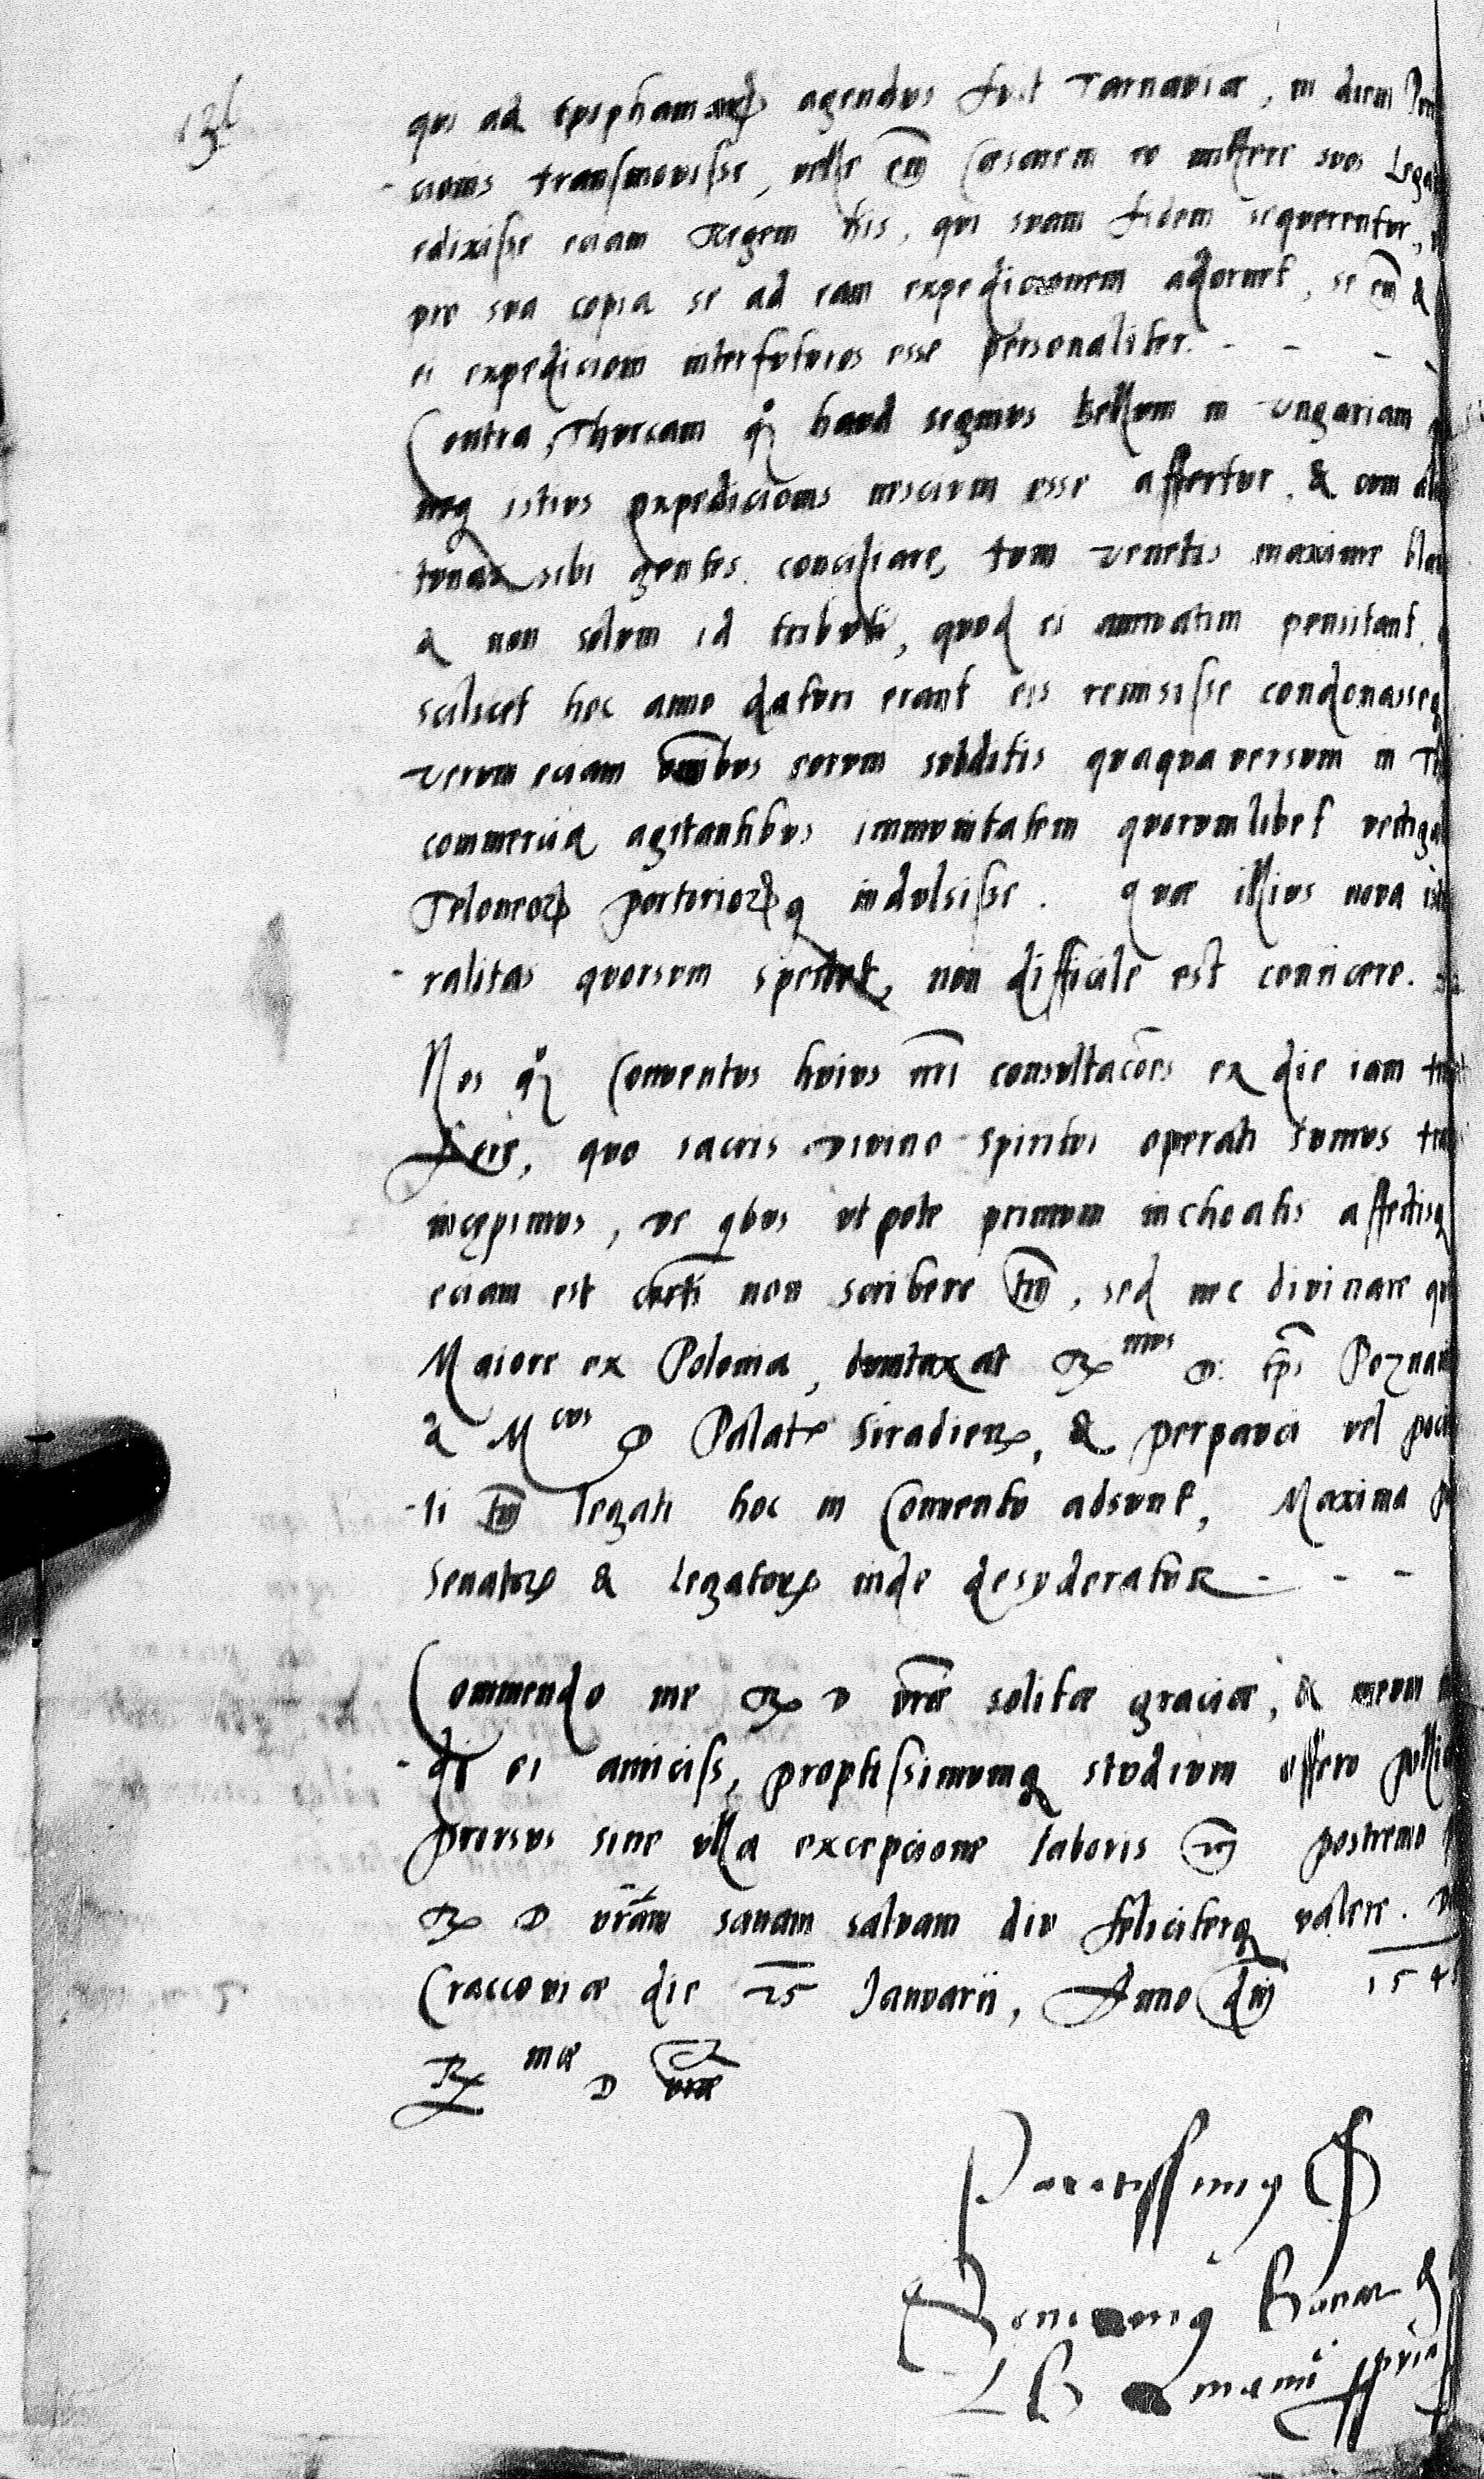 qui ad epiphaniarꝝ agendus fuit Tarnaviæ, in diem
cionis transmovisse, velle em̃ Cæsarem eo mittere suos Lega
edixisse eciam Regem his, qui suam fidem sequerentur,
pro sua copia se ad eam expedicionem adornet, se em̃ &
ei expedicioni interfuturos esse personaliter. - - -
Contra, Thurcam qꝫ haud segnius bellum in Ungariam
neqꝫ istius expedicionis nescium esse affertur, & cum
sibi gentes conciliare, tum Venetis maxime
& non solum id tributi, quod ei annuatim pensitant,
scilicet hoc anno daturi erant eis remisisse condonasseqꝫ
verum eciam om̃ibus eorum subditis quaquaversum in
commercia agitantibus immunitatem quorumlibet vectigal
Teloneorꝝ portoriorꝝqꝫ indulsisse. Quæ illius nova
ralitas quorsum spectet, non difficile est conijcere.
Nos qꝫ Conventus huius nr̃i consultac̃oes ex die iam
quo sacris divino spiritui operati sumus
incępimus, de qbus utpote primum inchoatis affectisqꝫ
eciam est certi non scribere tm̃, sed nec divinare
Maiore ex Polonia, duntaxat Rmus D. Ep̃s Poznan
& Mcus D Palatꝰ Siradienꝭ, & perpauci vel
ti tm̃ legati hoc in Conventu adsunt, Maxima
Senatorꝝ & Legatorꝝ inde desyderatur - - -
Commendo me R D vr̃æ solitæ graciæ, & meum
di ei amiciss, proptissimumqꝫ studium offero
prorsus sine ulla excepcione laboris postremo
R D vr̃am sanam salvam diu feliciterqꝫ valere.
Craccoviæ die 25 Januarii, Anno dñi 154
Rmæ D vr̃æ
Paratissimꝰ
Bonar
manu ppria